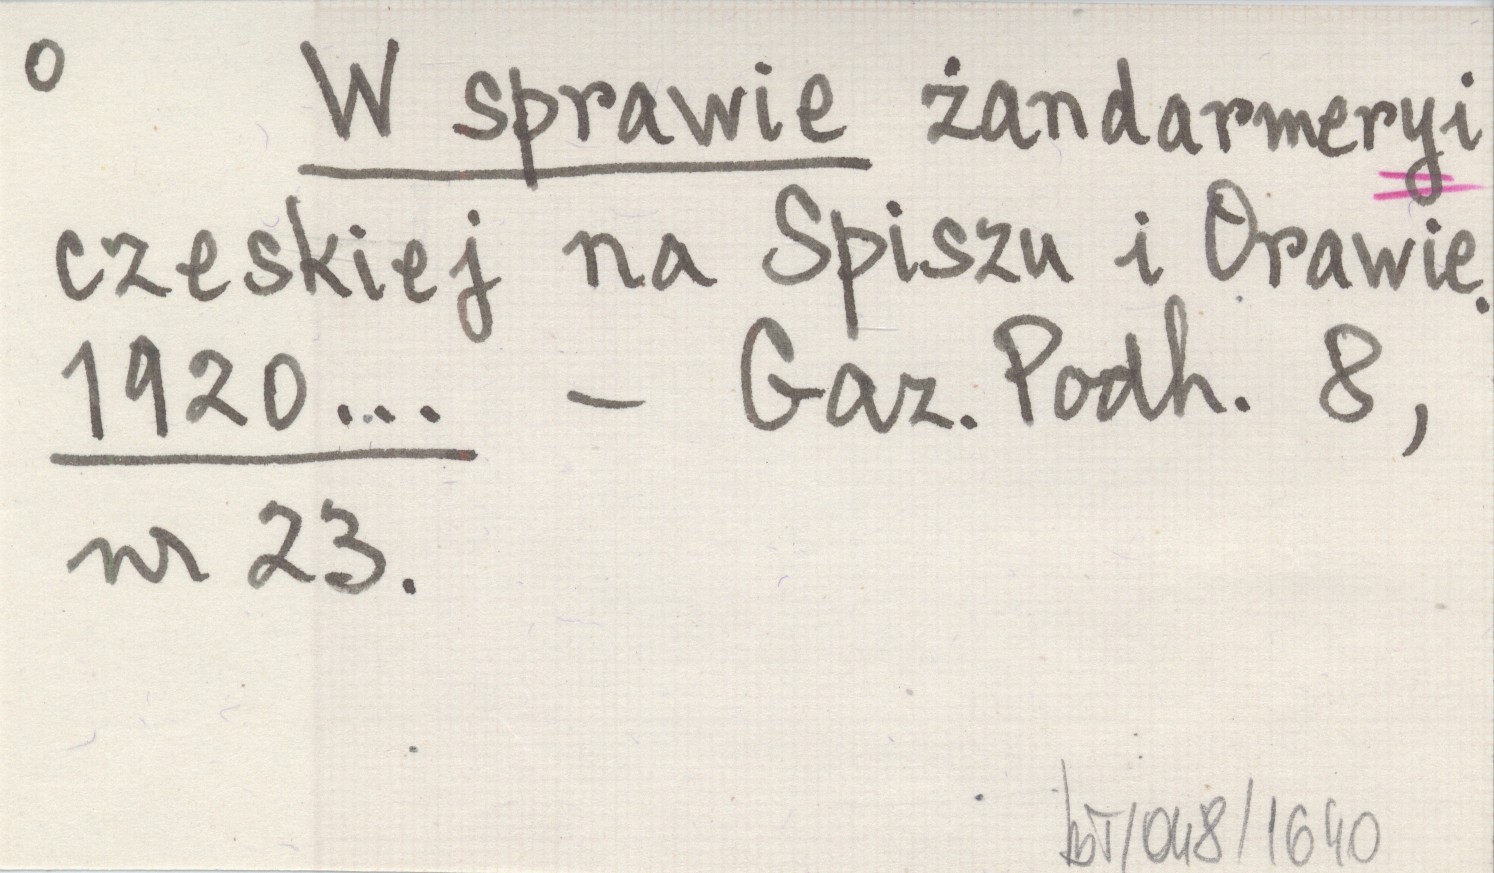 o W sprawie żandarmeryi
czeskiej na Spiszu i Orawie.
1920... - Gaz. Podh. 8,
nr 23.
/048/1640